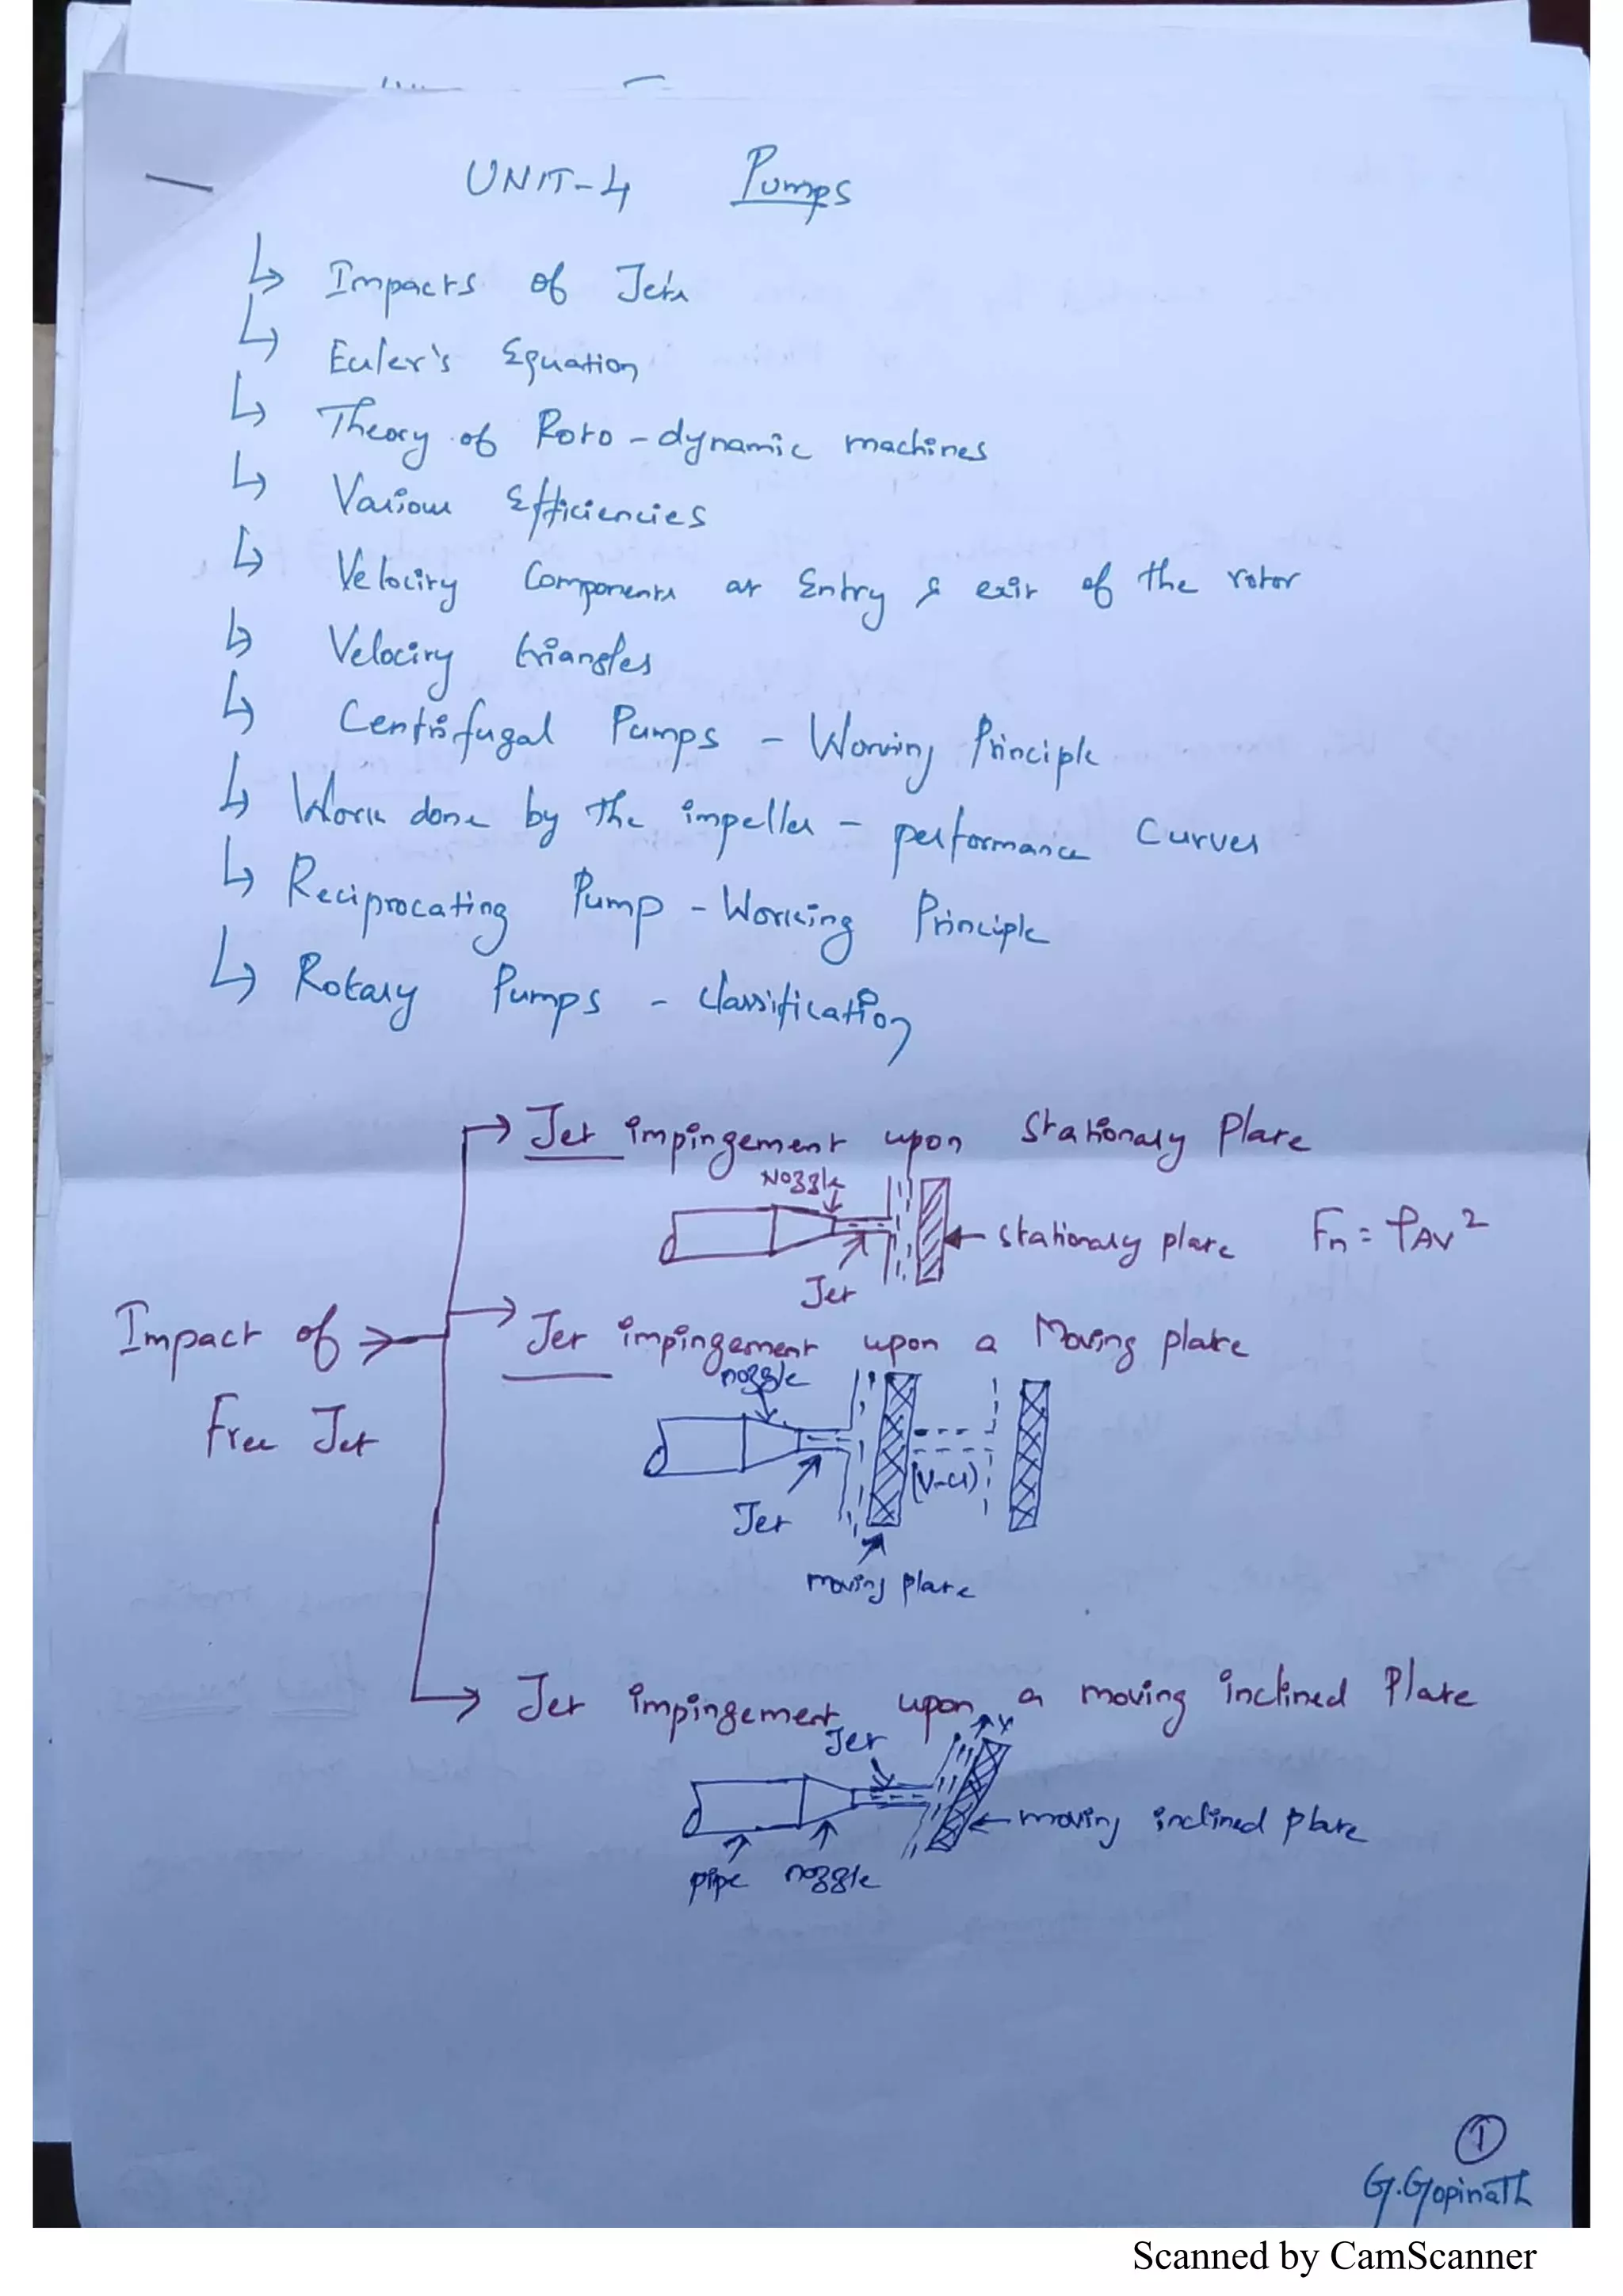 UNIT-4 Pumps
↳ Impacts of Jets
↳ Euler's Equation
↳ Theory of Roto-dynamic machines
↳ Various Efficiencies
↳ Velocity Components at Entry & exit of the rotor
↳ Velocity triangles
↳ Centrifugal Pumps - Working Principle
↳ Work done by the impeller - performance Curves
↳ Reciprocating Pump - Working Principle
↳ Rotary Pumps - classification
→ Jet impingement upon Stationary Plate
Nozzle
stationary plate Fn = ρAV²
Jet
Impact of Free Jet
→ Jet impingement upon a Moving plate
nozzle
(V-u)
Jet
moving plate
→ Jet impingement upon a moving inclined Plate
Jet
moving inclined plate
pipe nozzle
1
G.Gopinath
Scanned by CamScanner